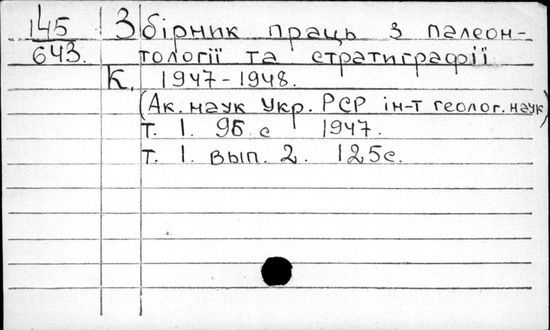 145 Збірник праць з палеон-
643. тології та стратиграфії
К. 1947-1948.
(Ак. наук Укр. РСР ін-т геолог. наук)
т. 1. 96 с 1947.
т. 1. вып. 2. 125с.